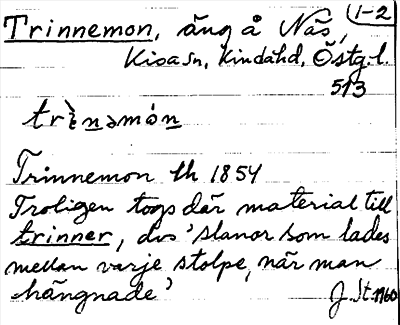 1-2
Trinnemon, äng å Näs,
Kisa sn, Kinda hd, Östg.l.
513
trìnəmón
Trinnemon lh 1854
Troligen togs där material till
trinner, dvs 'slanor som lades
mellan varje stolpe, när man
hängnade'
J. St. 1960